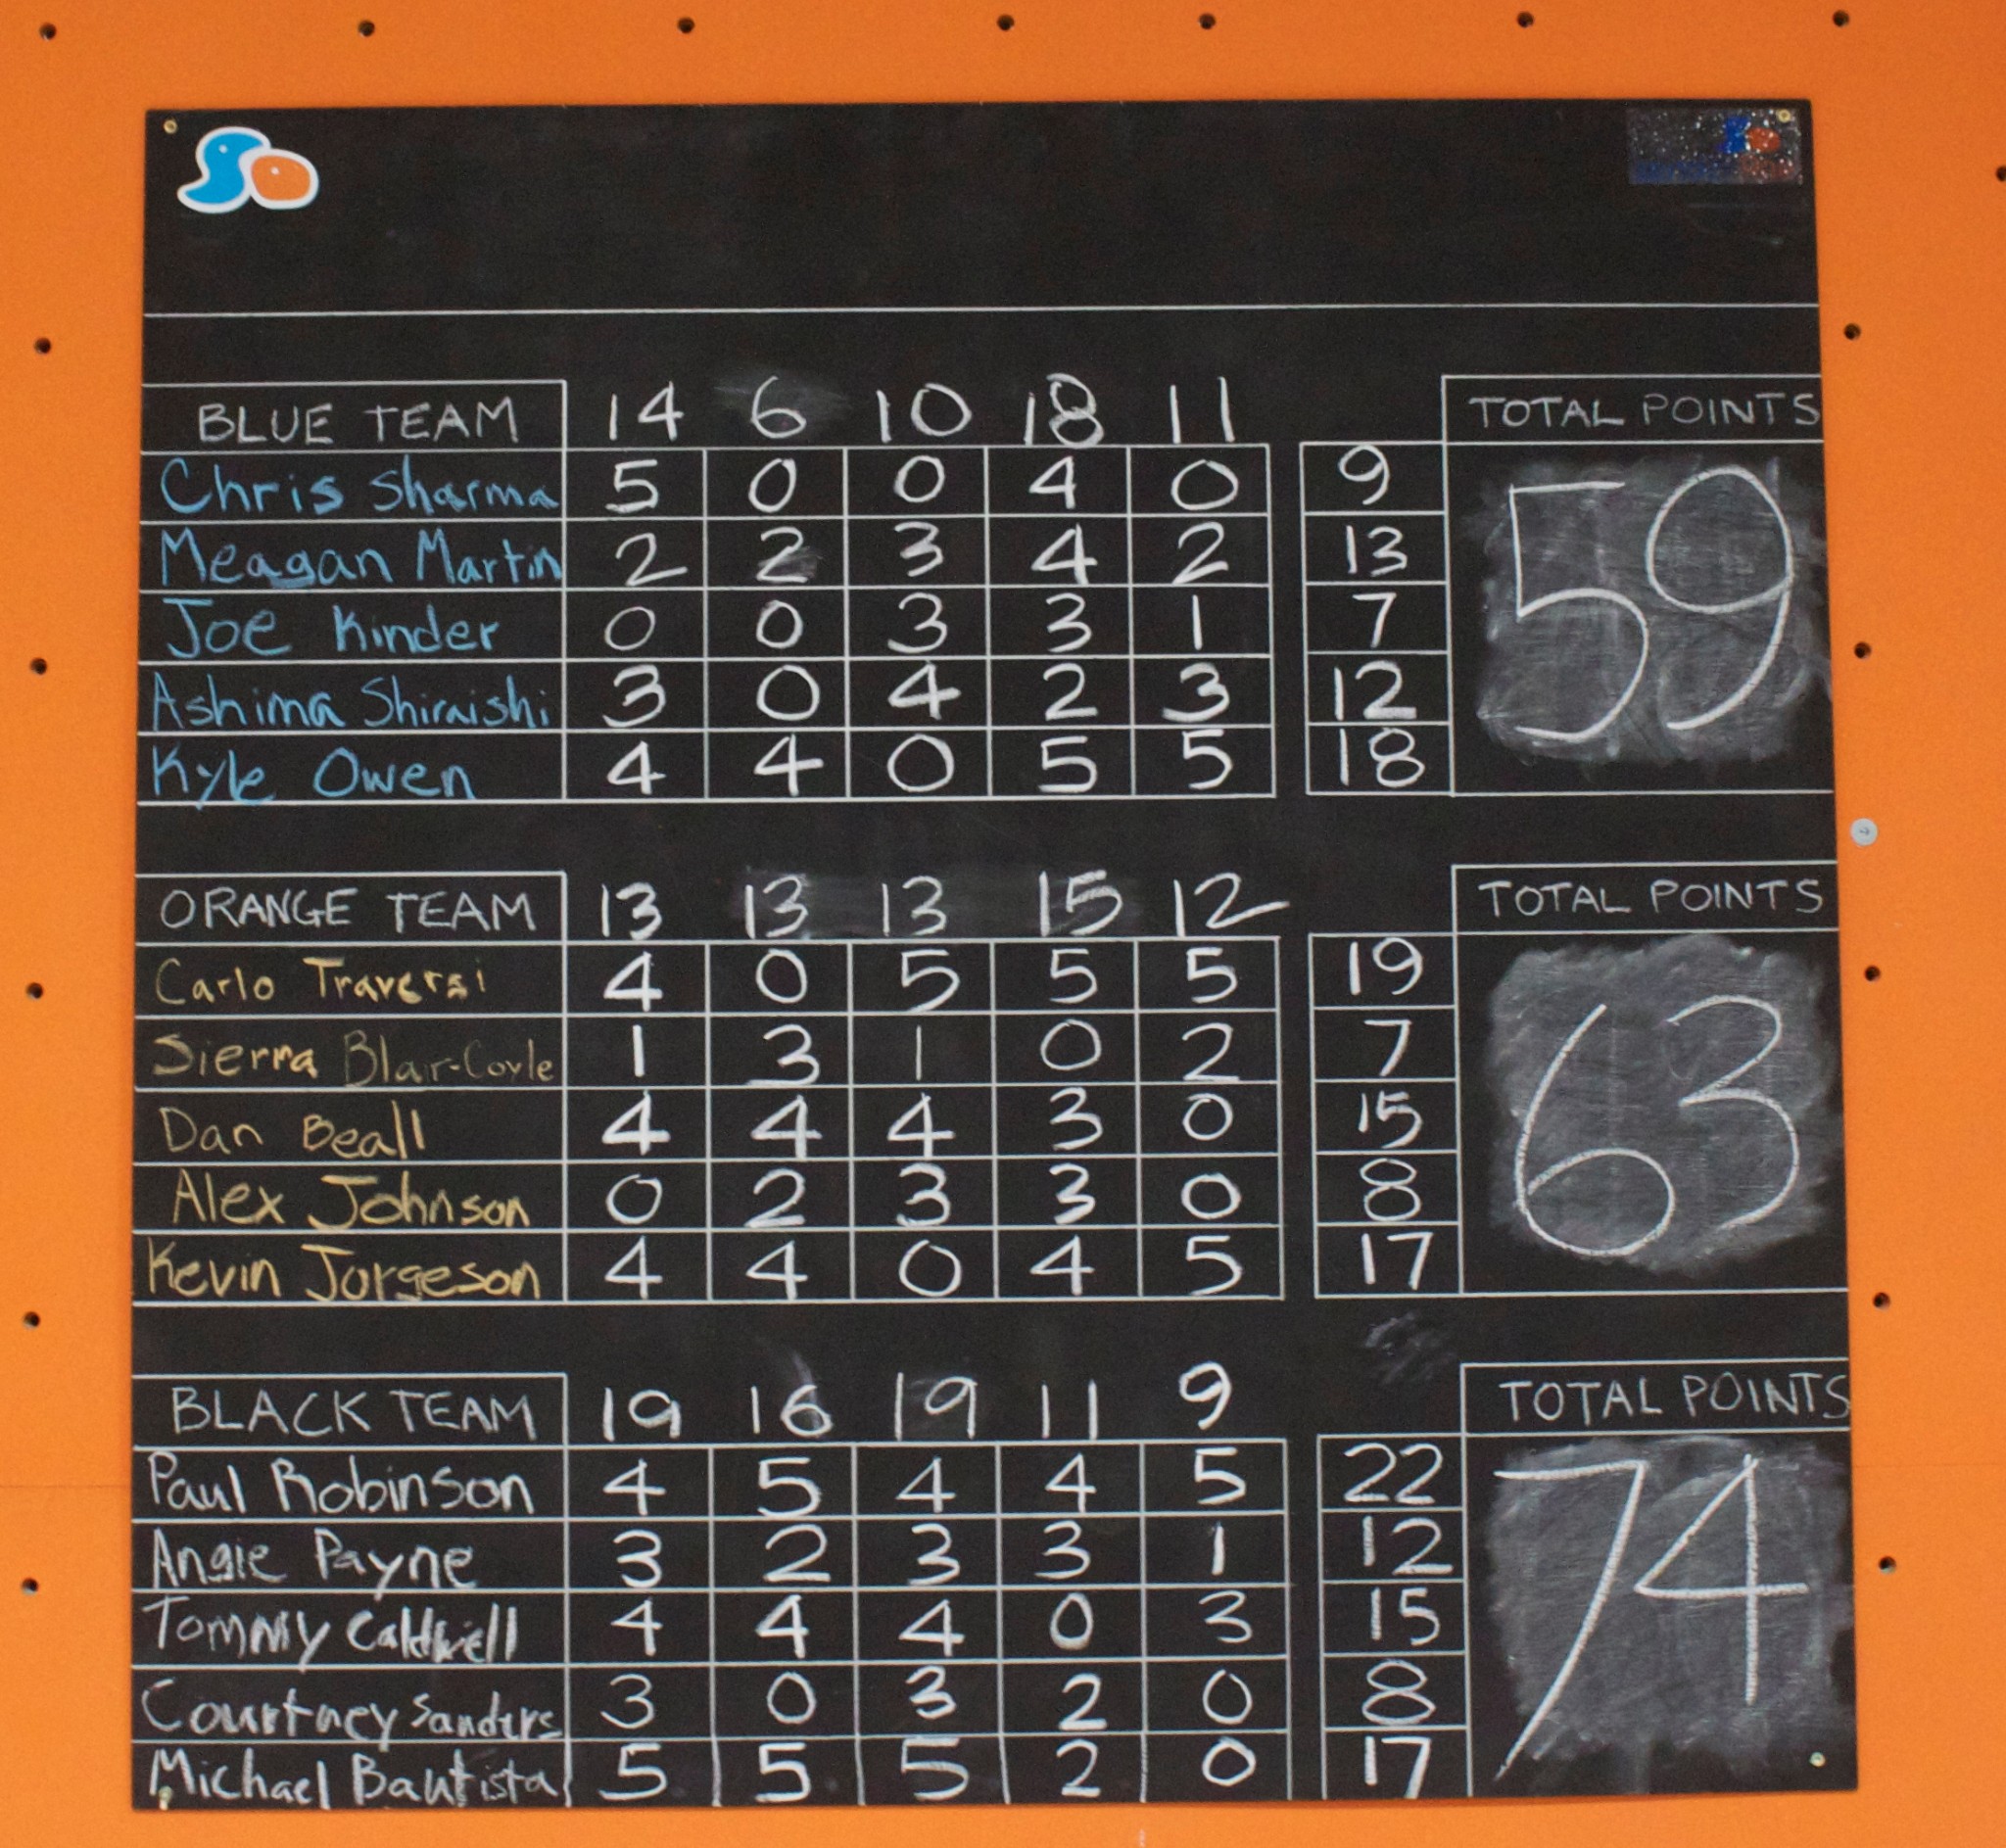 BLUE TEAM 14 6 10 18 11 TOTAL POINTS
Chris Sharma 5 0 0 4 0 9
Meagan Martin 2 2 3 4 2 13
Joe Kinder 0 0 3 3 1 7
Ashima Shiraishi 3 0 4 2 3 12
Kyle Owen 4 4 0 5 5 18
59
ORANGE TEAM 13 13 13 15 12 TOTAL POINTS
Carlo Traversi 4 0 5 5 5 19
Sierra Blair-Coyle 1 3 1 0 2 7
Dan Beall 4 4 4 3 0 15
Alex Johnson 0 2 3 3 0 8
Kevin Jorgeson 4 4 0 4 5 17
63
BLACK TEAM 19 16 19 11 9 TOTAL POINTS
Paul Robinson 4 5 4 4 5 22
Angie Payne 3 2 3 3 1 12
Tommy Caldwell 4 4 4 0 3 15
Courtney Sanders 3 0 3 2 0 8
Michael Bautista 5 5 5 2 0 17
74